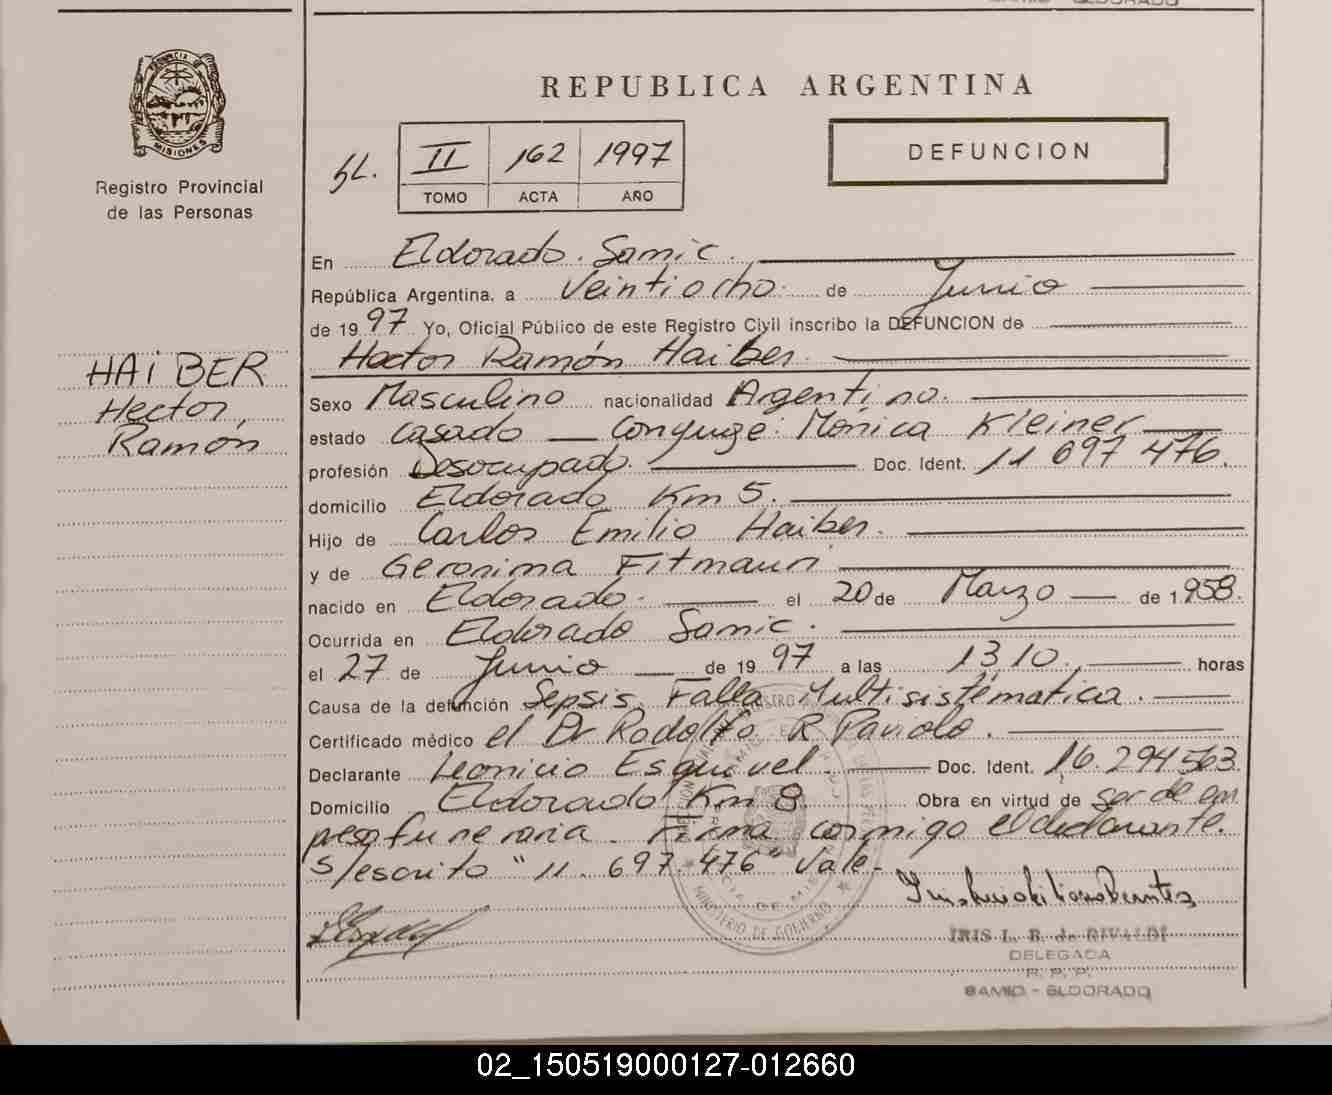 PROVINCIA DE
MISIONES
Registro Provincial
de las Personas
REPUBLICA ARGENTINA
II 162 1997
TOMO ACTA AÑO
DEFUNCION
En Eldorado. Samic.
República Argentina, a Veintiocho de Junio
de 1997 Yo, Oficial Público de este Registro Civil inscribo la DEFUNCION de
Hector Ramón Haiber.
HAiBER
Hector,
Ramón
Sexo Masculino nacionalidad Argentino.
estado casado — Conyuge: Monica Kleiner
profesión Desocupado. Doc. Ident. 11 697 476.
domicilio Eldorado Km 5.
Hijo de Carlos Emilio Haiber.
y de Geronima Fitmaun
nacido en Eldorado. el 20 de Marzo — de 1.958.
Ocurrida en Eldorado Samic.
el 27 de Junio — de 1997 a las 13,10, horas
Causa de la defunción Sepsis. Falla Multisistematica.
Certificado médico el Dr Rodolfo R
Declarante Leonicio Esquivel. Doc. Ident. 16.294563.
Domicilio Eldorado Km 8 Obra en virtud de ser de em
presa funeraria. Firma conmigo el declarante.
S/escrito "11.697.476" Vale.-
MINISTERIO DE GOBIERNO
IRIS L. B. de RIVALDI
DELEGADA
R. P. P.
SAMIC - ELDORADO
02_150519000127-012660